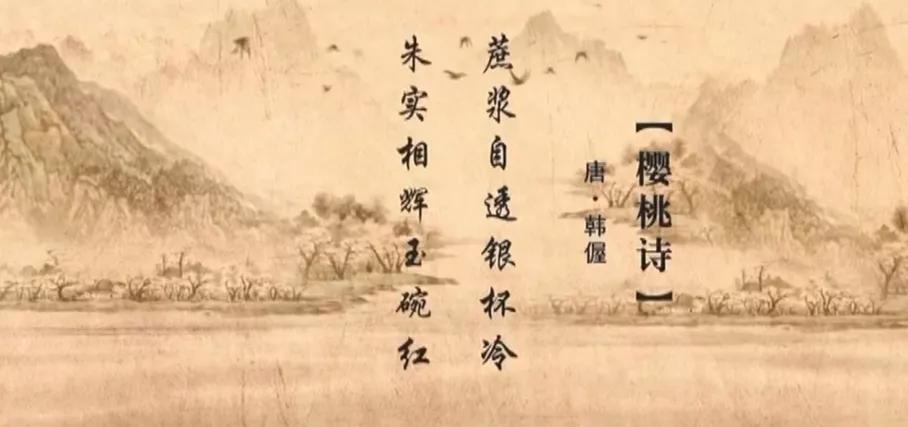 【樱桃诗】
唐·韩偓
蔗浆自透银杯冷
朱实相辉玉碗红